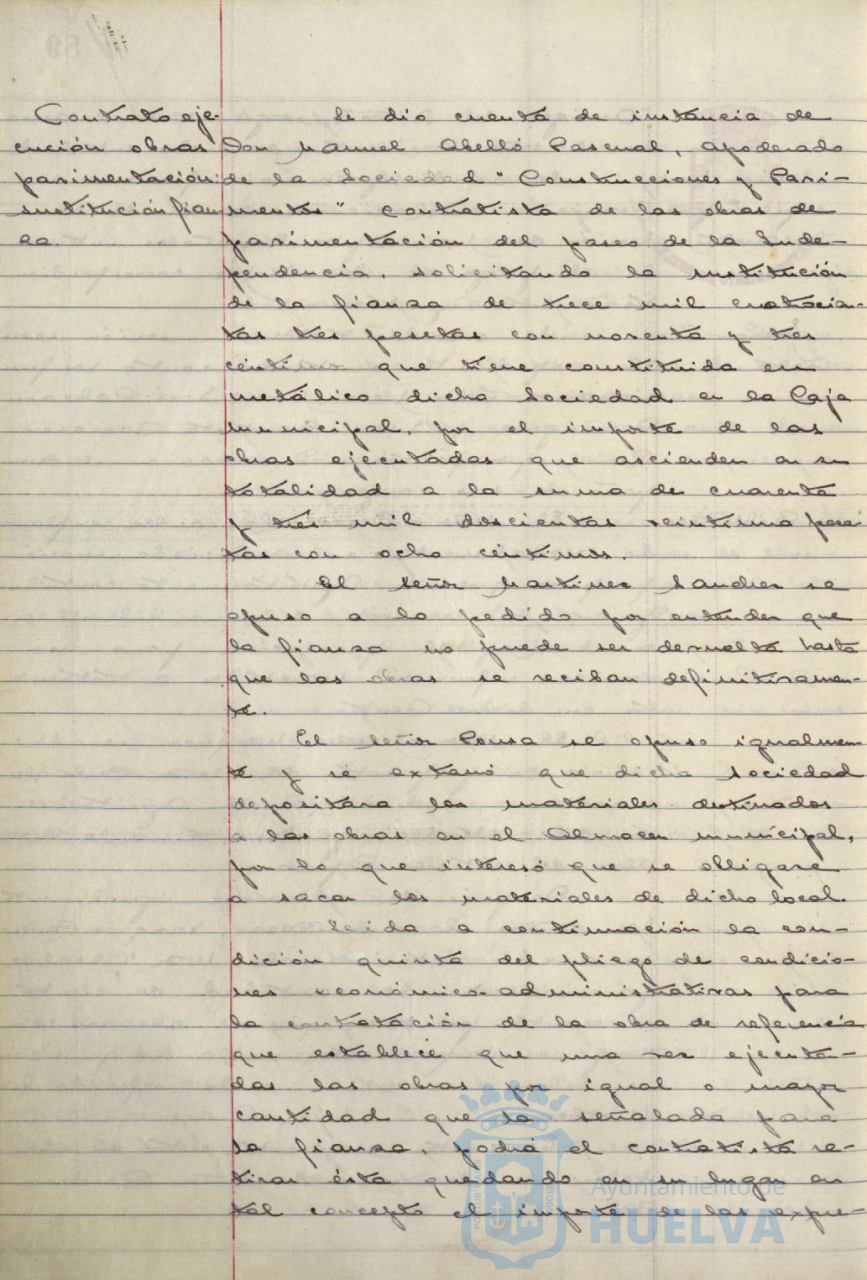 Contrato eje-
cución obras
pavimentación:
sustitución fian
za.
Se dio cuenta de instancia de
Don Manuel Abelló Pascual, apoderado
de la Sociedad "Construcciones y Pavi-
mentos" contratista de las obras de
pavimentación del paseo de la Inde-
pendencia, solicitando la sustitución
de la fianza de trece mil cuatrocien-
tas tres pesetas con noventa y tres
céntimos que tiene constituida en
metálico dicha Sociedad en la Caja
municipal, por el importe de las
obras ejecutadas que ascienden en su
totalidad a la suma de cuarenta
y tres mil doscientas veintiuna pese-
tas con ocho céntimos.
El señor Martinez Sanchez se
opuso a lo pedido por entender que
la fianza no puede ser devuelta hasta
que las obras se reciban definitivamen-
te.
El señor Pousa se opuso igualmen
te y se extrañó que dicha sociedad
depositara los materiales destinados
a las obras en el Almacen municipal,
por lo que interesó que se obligase
a sacar los materiales de dicho local.
Leida a continuación la con-
dición quinta del pliego de condicio-
nes económico-administrativas para
la contratación de la obra de referencia
que establece que una vez ejecuta-
das las obras por igual o mayor
cantidad que la señalada para
la fianza, podrá el contratista re-
tirar ésta quedando en su lugar en
tal concepto el importe de las expre-
Ayuntamiento de
HUELVA